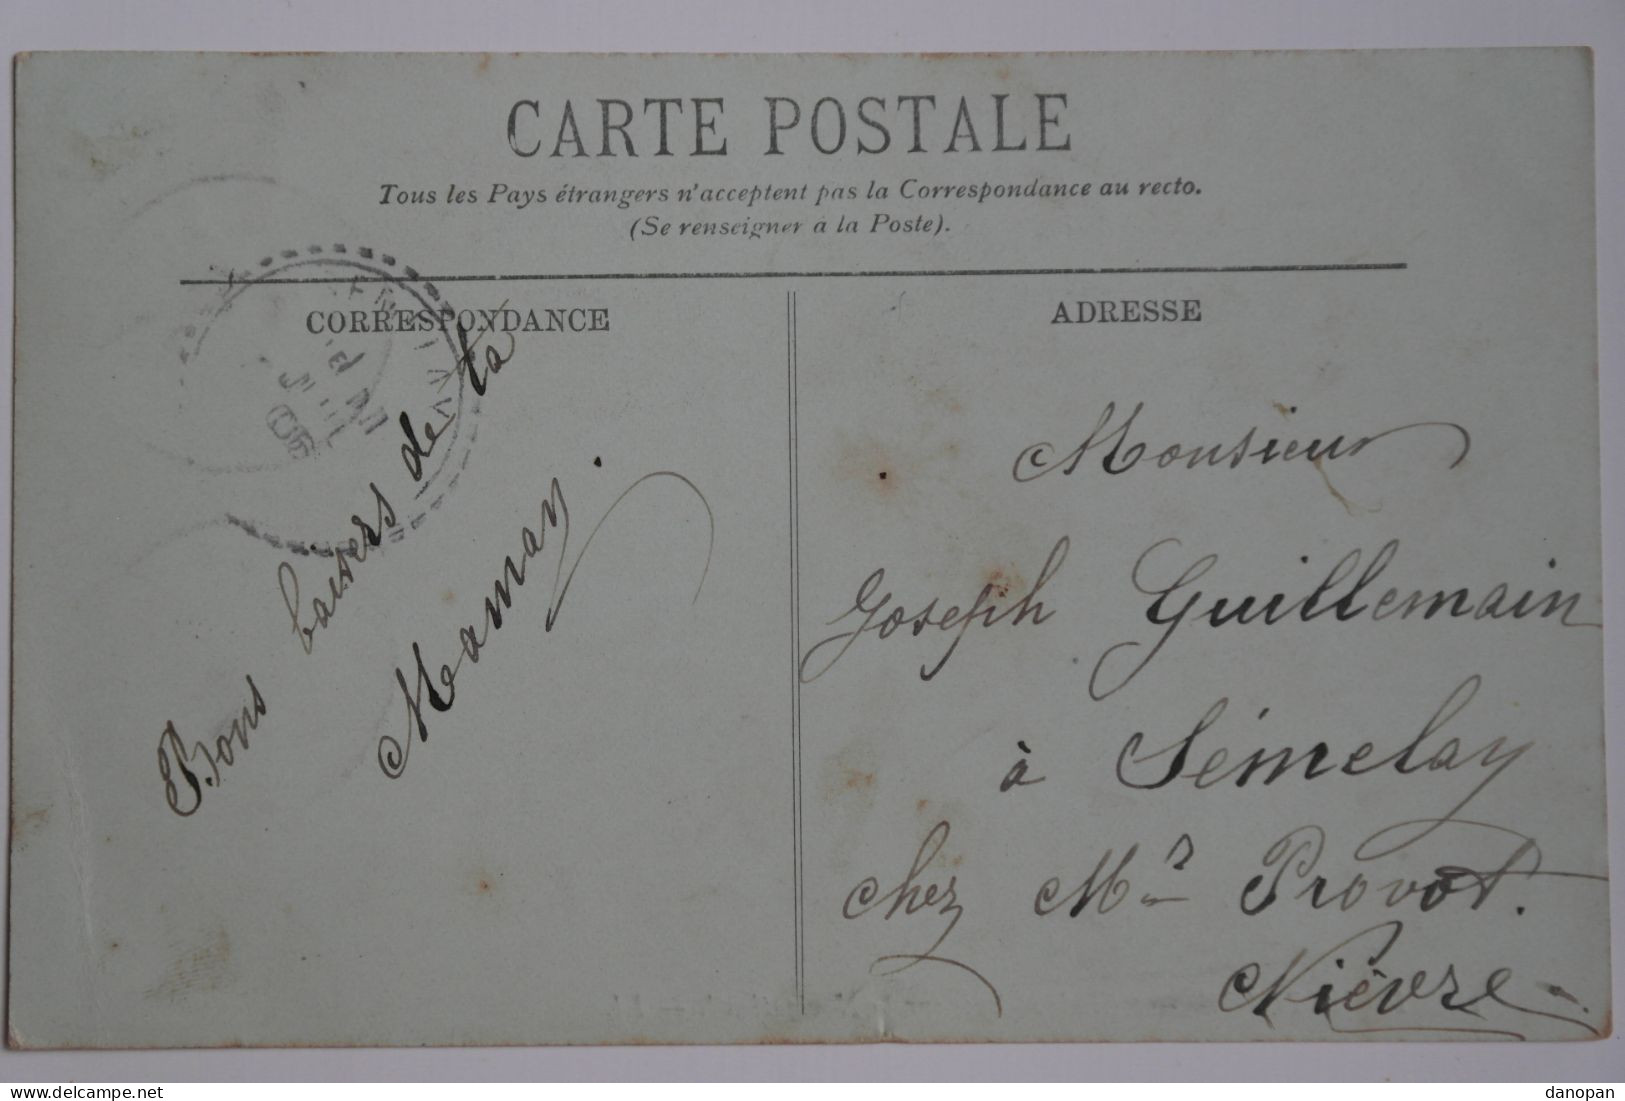 CARTE POSTALE
Tous les Pays étrangers n'acceptent pas la Correspondance au recto.
(Se renseigner à la Poste).
CORRESPONDANCE
ADRESSE
Bons baisers de ta
Maman.
Monsieur
Joseph Guillemain
à Sémelay
chez Mr Provot.
Nièvre.
06
danopan